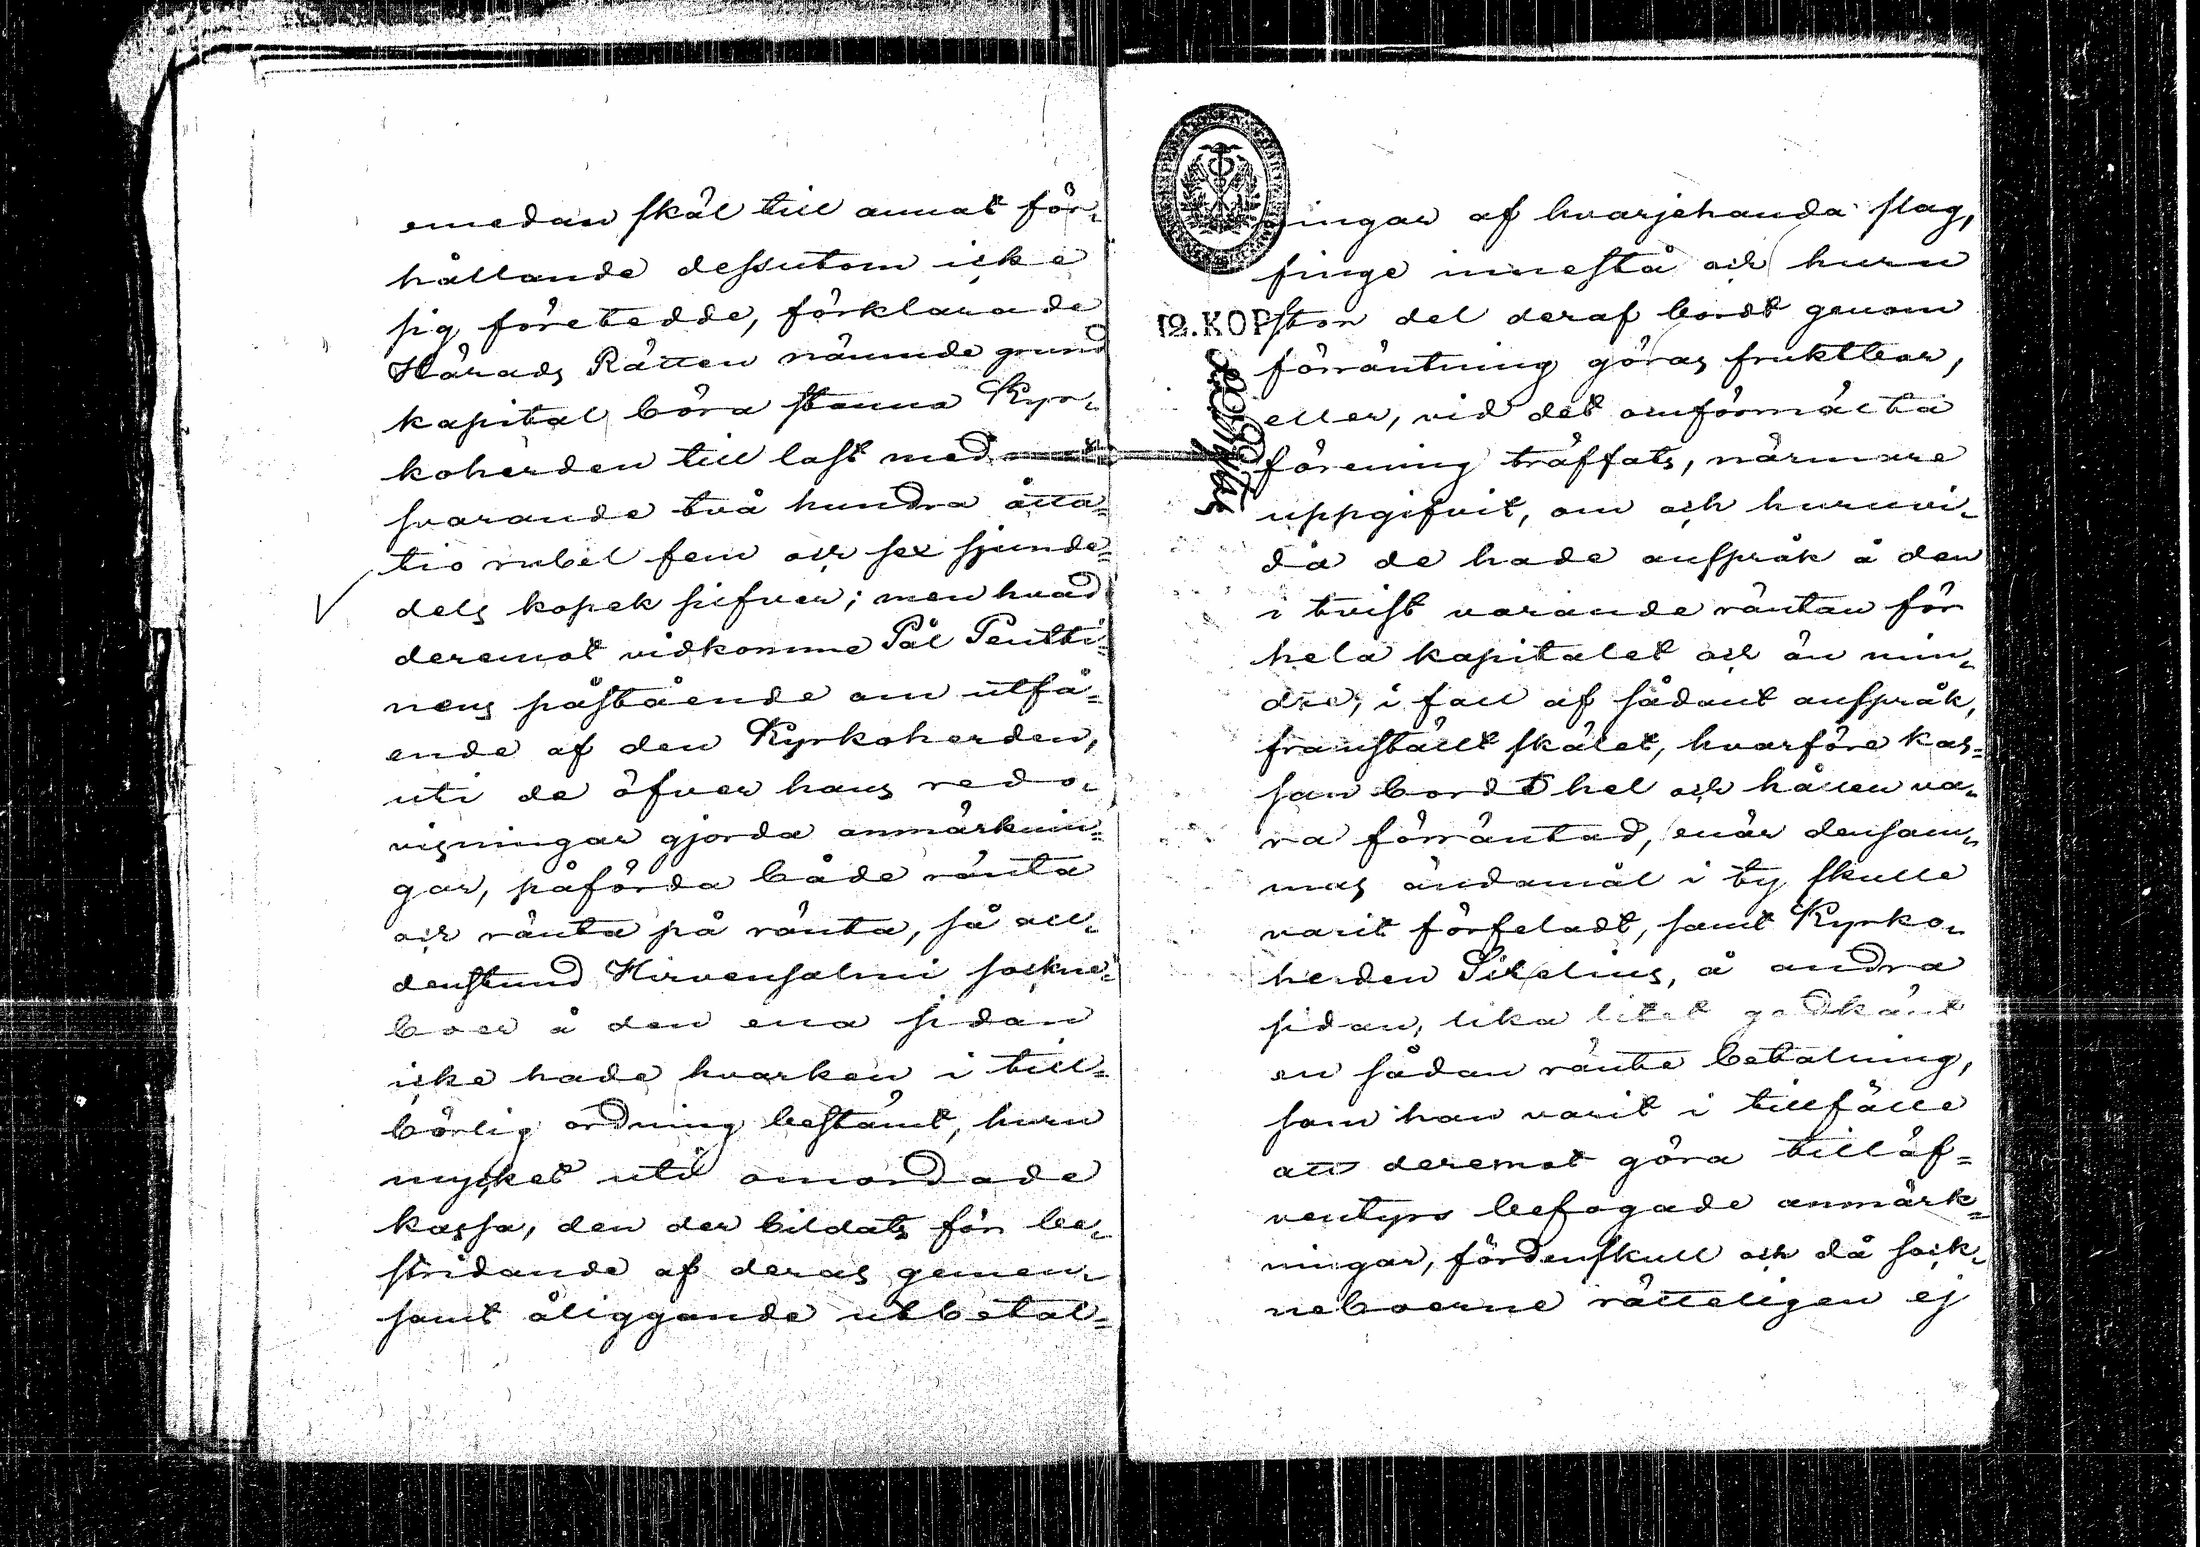 emedan skäl till annat för-
hållande dessutom icke
sig företedde, förklarade
Härads Rätten nämnde grund
kapital böra stanna Kyr-
koherden till last med mot-
svarande två hundra åtta-
tio rubel fem och sex sjunde-
dels kopek silfver; men hvad
deremot vidkomme Pål Pentti-
nens påstående om utfå-
ende af den Kyrkoherden,
uti de öfver hans redo-
visningar gjorda anmärknin-
gar, påförda både ränta
och ränta på ränta, så all-
denstund Hirvensalmi sockne-
boer å den ena sidan
icke hade hvarken i till-
börlig ordning bestämt, huru
mycket uti omordade
kassa, den der bildats för be-
stridande af deras gemen-
samt åliggande utbetal-
ningar af hvarjehanda slag,
finge innestå och huru
12.KOP
stor del deraf bordt genom
förräntning göras fruktbar,
eller, vid det omförmälta
förening träffats, närmare
uppgifvit, om och huruvi-
da de hade anspråk å den
i tvist varande räntan för
hela kapitalet och än min-
dre, i fall af sådant anspråk,
framställt skälet, hvarföre kas-
san bordt hel och hållen va-
ra förräntad, enär densam-
mas ändamål i ty skulle
varit förfeladt, samt Kyrko-
herden Sirelius, å andra
sidan, lika litet godkänt
en sådan ränte betalning,
som han varit i tillfälle
att deremot göra tilläf-
ventyrs befogade anmärk-
ningar, fördenskull och då sock-
neboerne rätteligen ej